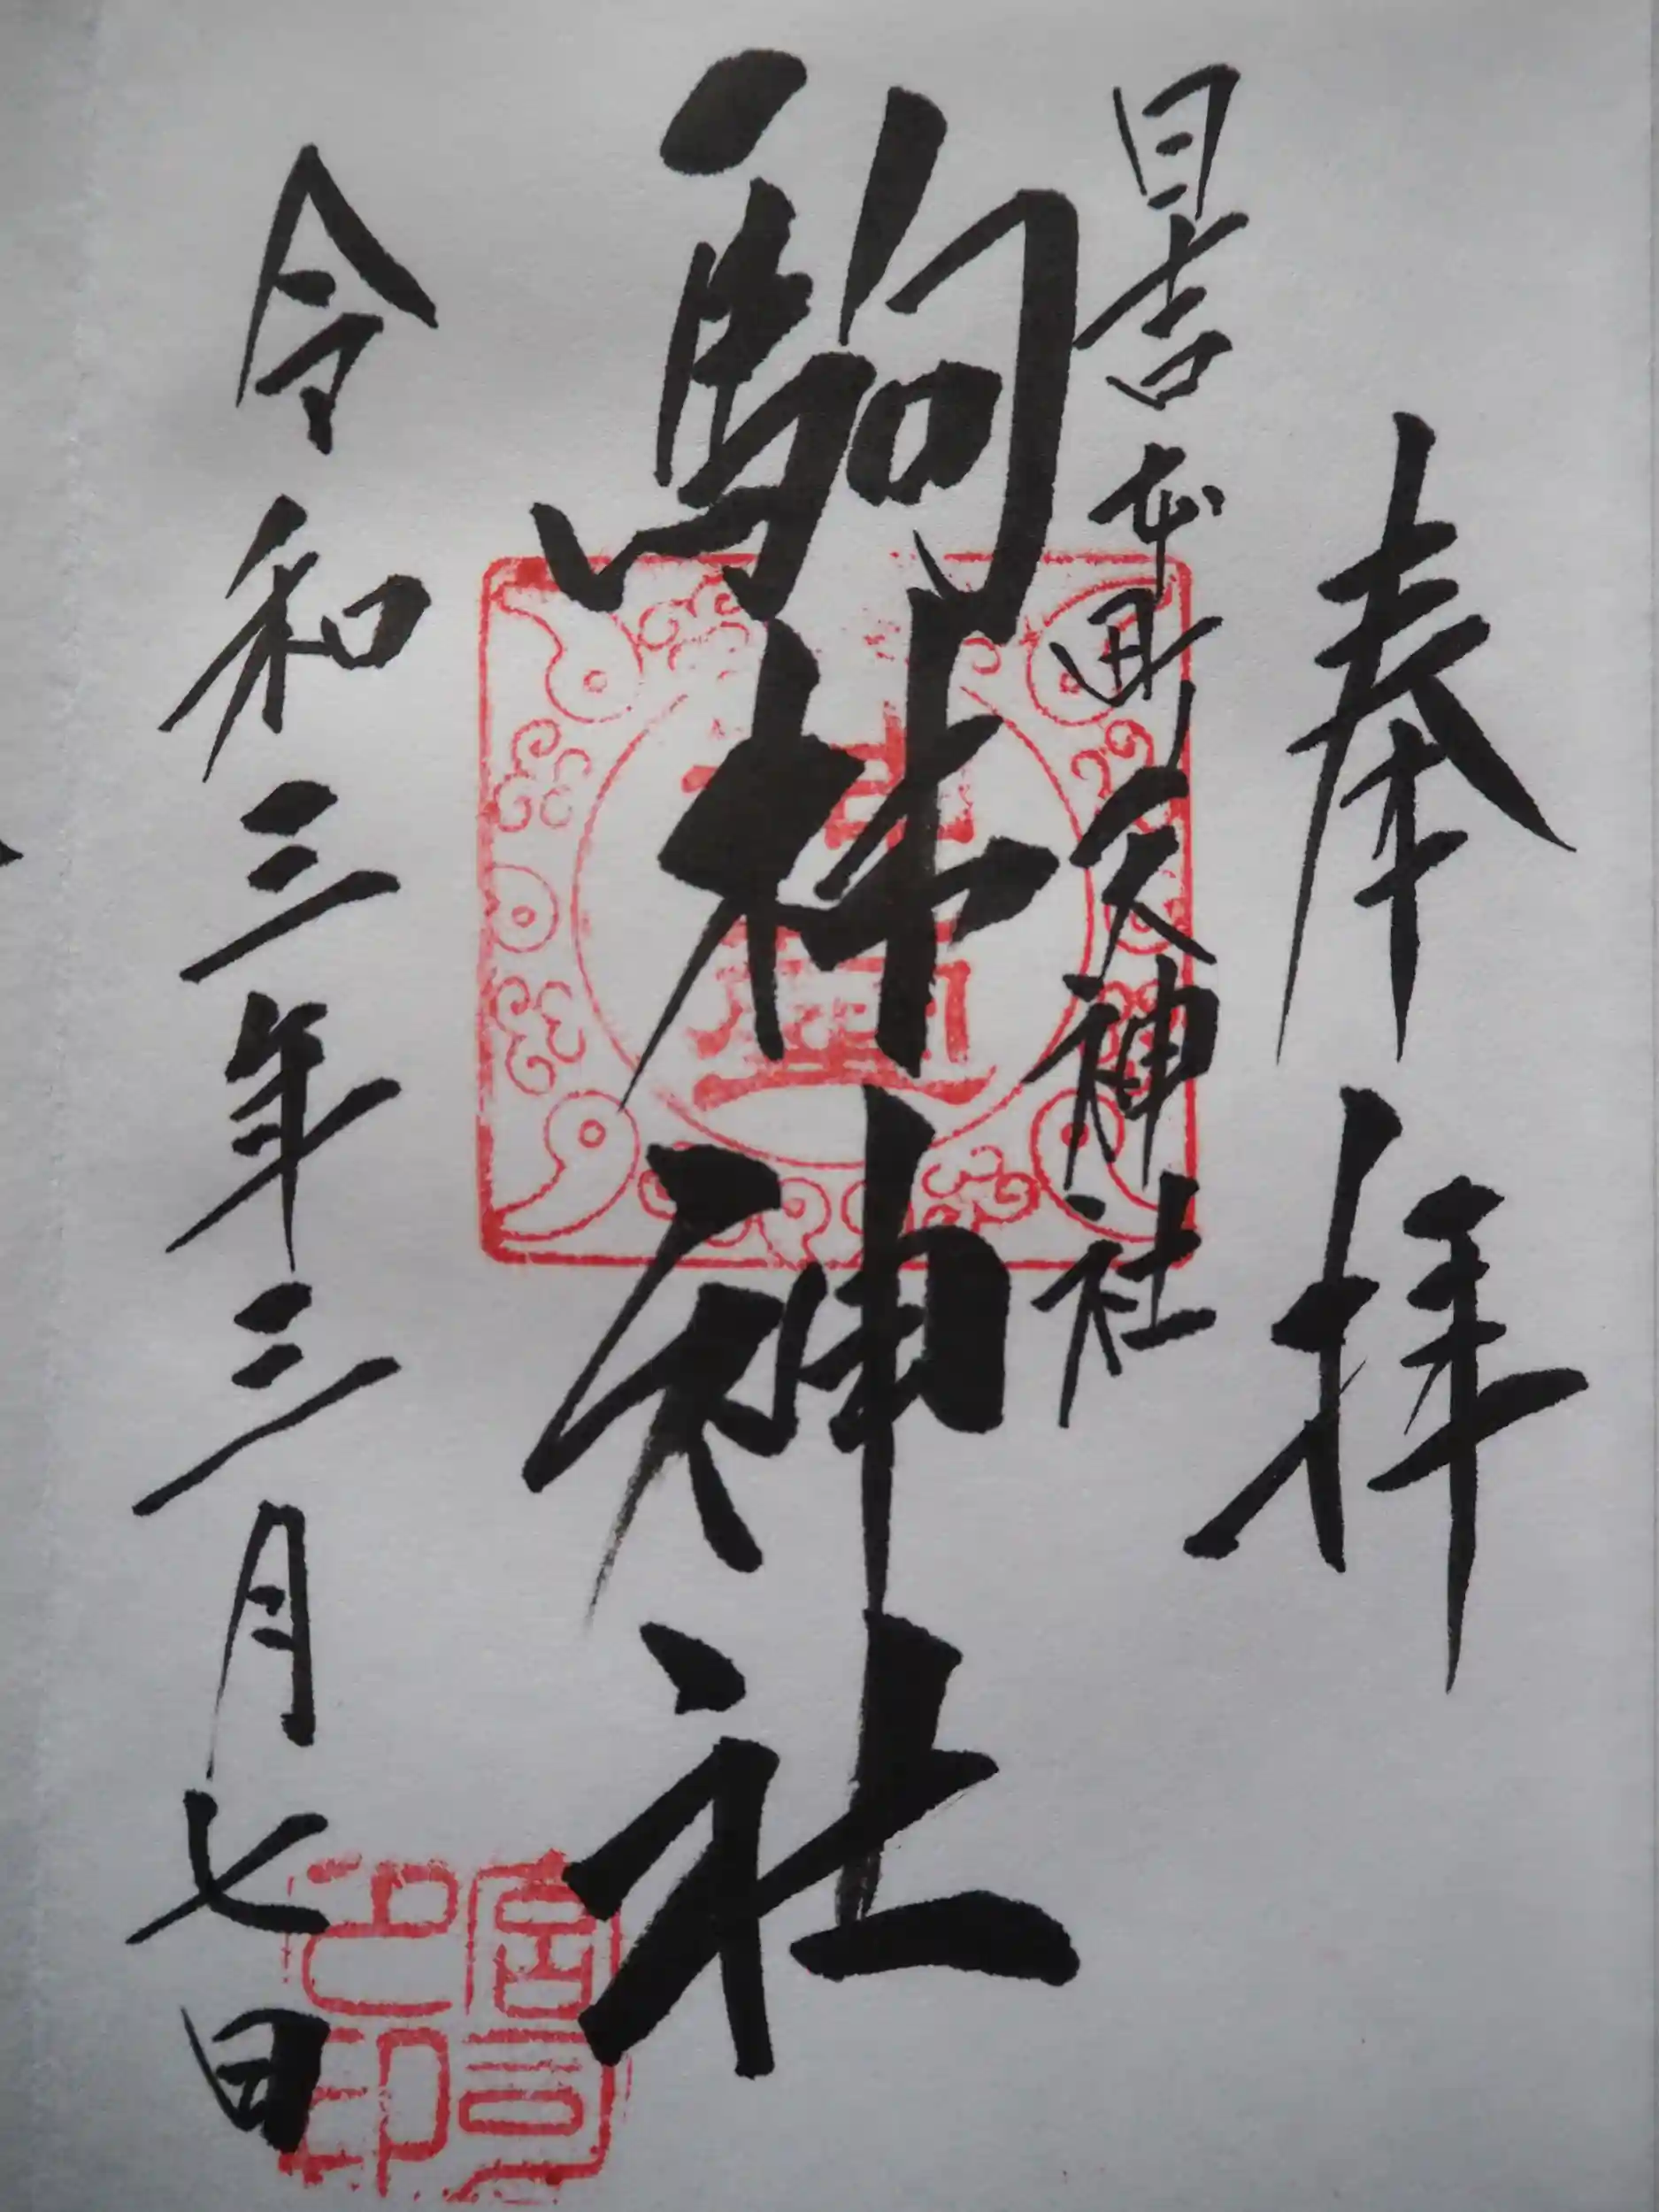 奉拝
日吉本町天神社
駒林神社
令和三年三月七日
宮司
之印